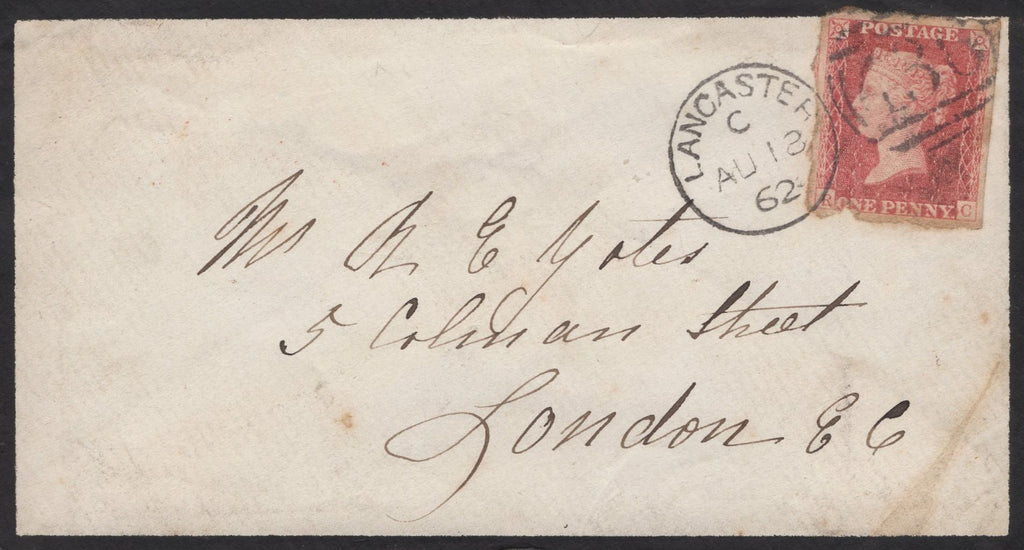 POSTAGE
ONE PENNY
R C
LANCASTER
C
AU 18
62
Mr R E Yates
5 Colman Street
London E C